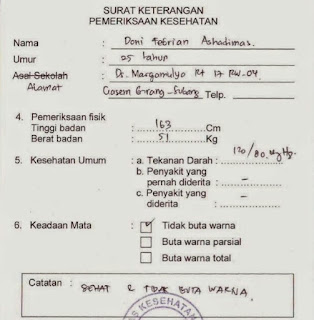 SURAT KETERANGAN
PEMERIKSAAN KESEHATAN
Nama : Doni Febrian Ashadimas.
Umur : 25 tahun
Asal Sekolah : Ds. Margamulyo Rt 17 RW-04.
Alamat Ciasem Girang-Subang Telp.
4. Pemeriksaan fisik
Tinggi badan : 163 Cm
Berat badan : 51 Kg
5. Kesehatan Umum : a. Tekanan Darah : 120/80. MgHg.
b. Penyakit yang
pernah diderita : -
c. Penyakit yang
diderita : -
6. Keadaan Mata : Tidak buta warna
Buta warna parsial
Buta warna total
Catatan : SEHAT & TIDAK BUTA WARNA
KESEHATAN